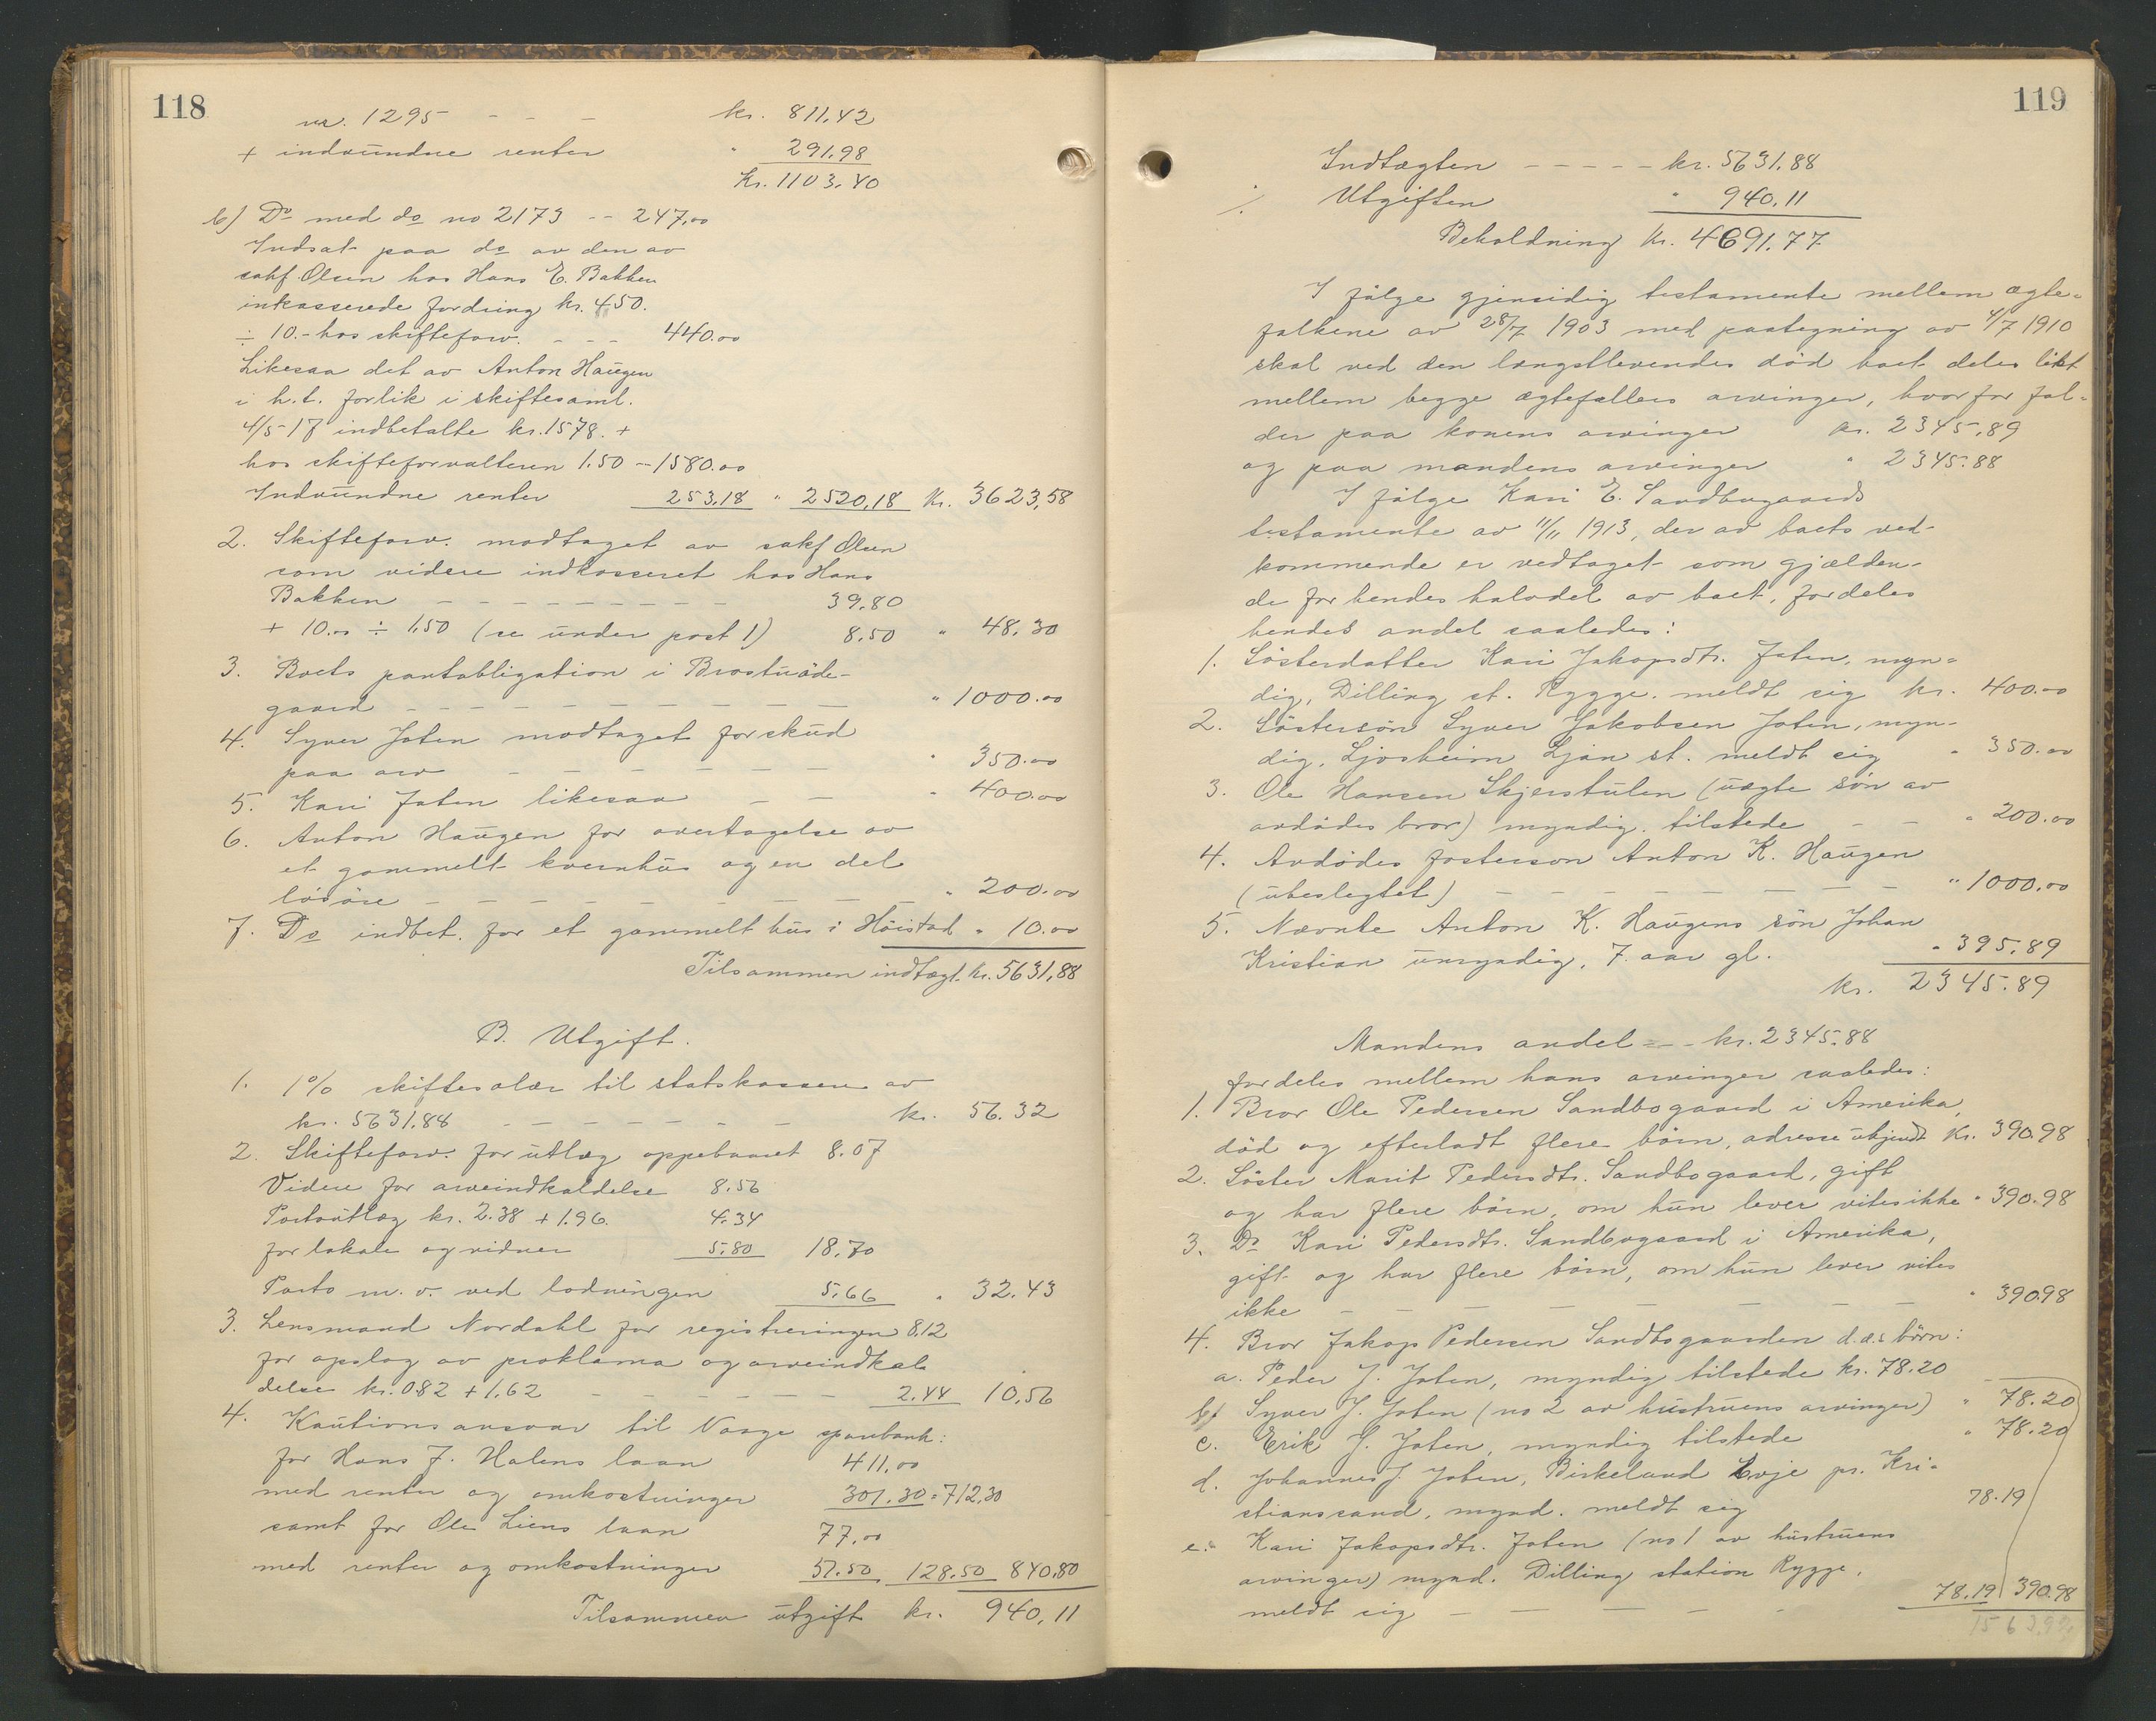 118
nr. 1295 - - - kr. 811.42
+ indvundne renter " 291.98
Kr. 1103.40
b) Do med do no 2173 -- 247.00
Indsat paa do av den av
sakf. Olsen hos Hans E. Bakken
inkasserede fordring kr. 450.
÷ 10.- hos skifteforv. - - - 440.00
Likesaa det av Anton Haugen
i h.t. forlik i skiftesaml.
4/5 17 indbetalte kr. 1578. +
hos skifteforvalteren 1.50 - 1580.00
Indvundne renter 253.18 " 2520.18 Kr. 3623,58
2. Skifteforv. modtaget av sakf Olsen
som videre indkasseret hos Hans
Bakken - - - - - - - - - 39.80
+ 10.00 ÷ 1,50 (se under post 1) 8.50 " 48.30
3. Boets pantobligation i Brostuøde-
gaard - - - - - - - - - - " 1000.00
4. Syver Joten modtaget forskud
paa arv - - - - - - " 350.00
5. Kari Joten likesaa - - " 400.00
6. Anton Haugen for overtagelse av
et gammelt kvernhus og en del
løsøre - - - - - - - - " 200.00
7. Do indbet. for et gammelt hus i Høistad " 10.00
Tilsammen indtægt kr. 5631,88
B. Utgift.
1. 1% skiftesalær til statskassen av
kr. 5631.88 - - - - - - - kr. 56.32
2. Skifteforv. for utlæg oppebaaret 8.07
Videre for arveindkaldelse 8.56
Portoutlæg kr. 2.38 + 1.96. 4.34
for lokale og vidner 5.80 18.70
Porto m.v. ved lodningen 5.66 " 32.43
3. Lensmand Nordahl for registreringen 8.12
for opslag av proklama og arveindkal
delse kr. 0.82 + 1.62 - - - - - - 2.44 10.56
4. Kautionsansvar til Vaage sparebank:
for Hans J. Halens laan 411.00
med renter og omkostninger 301.30 = 712.30
samt for Ole Liens laan 77.00
med renter og omkostninger 51.50 128.50 840.80
Tilsammen utgift kr. 940.11
119
Indtægten - - - - - kr. 5631.88
÷ Utgiften " 940.11
Beholdning Kr. 4691.77
I følge gjensidig testamente mellem ægte-
folkene av 28/7 1903 med paategning av 4/7 1910
skal ved den længstlevendes død boet deles likt
mellem begge ægtefællers arvinger, hvorfor fal-
der paa konens arvinger kr. 2345,89
og paa mandens arvinger " 2345.88
I følge Kari E. Sandbogaards
testamente av 11/11 1913, der av boets ved-
kommende er vedtaget som gjælden-
de for hendes halvdel av boet, fordeles
hendes andel saaledes:
1. Søsterdatter Kari Jakopsdtr. Joten, myn-
dig, Dilling st. Rygge. meldt sig kr. 400.00
2. Søstersøn Syver Jakobsen Joten, myn-
dig, Ljosheim Ljan st. meldt sig " 350.00
3. Ole Hansen Skjerstulen (uægte søn av
avdødes bror) myndig. tilstede - - " 200.00
4. Avdødes fosterson Anton K. Haugen
(ubeslegtet) - - - - - - - - " 1000.00
5. Nævnte Anton K. Haugens søn Johan
Kristian umyndig, 7. aar gl. " 395.89
kr. 2345.89
Mandens andel - - kr. 2345.88
fordeles mellem hans arvinger saaledes:
1. Bror Ole Pedersen Sandbogaard i Amerika,
død og efterladt flere børn, adresse ukjendt Kr. 390.98
2. Søster Marit Pedersdtr. Sandbogaard, gift
og har flere børn, om hun lever vites ikke " 390.98
3. Do Kari Pedersdtr. Sandbogaard i Amerika,
gift og har flere børn, om hun lever vites
ikke - - - - - - - - - " 390.98
4. Bror Jakop Pedersen Sandbogaarden d.æ.s børn:
a. Peder J. Joten, myndig tilstede kr. 78.20
b. Syver J. Joten (no 2 av hustruens arvinger) " 78.20
c. Erik J. Joten, myndig tilstede " 78.20
d. Johannes J. Joten, Birkeland Evje pr. Kri-
stianssand, mynd. meldt sig 78.19
e. Kari Jakopsdtr. Joten (no 1 av hustruens
arvinger) mynd. Dilling station Rygge,
meldt sig - - - - - 78.19 390.98
1563.92